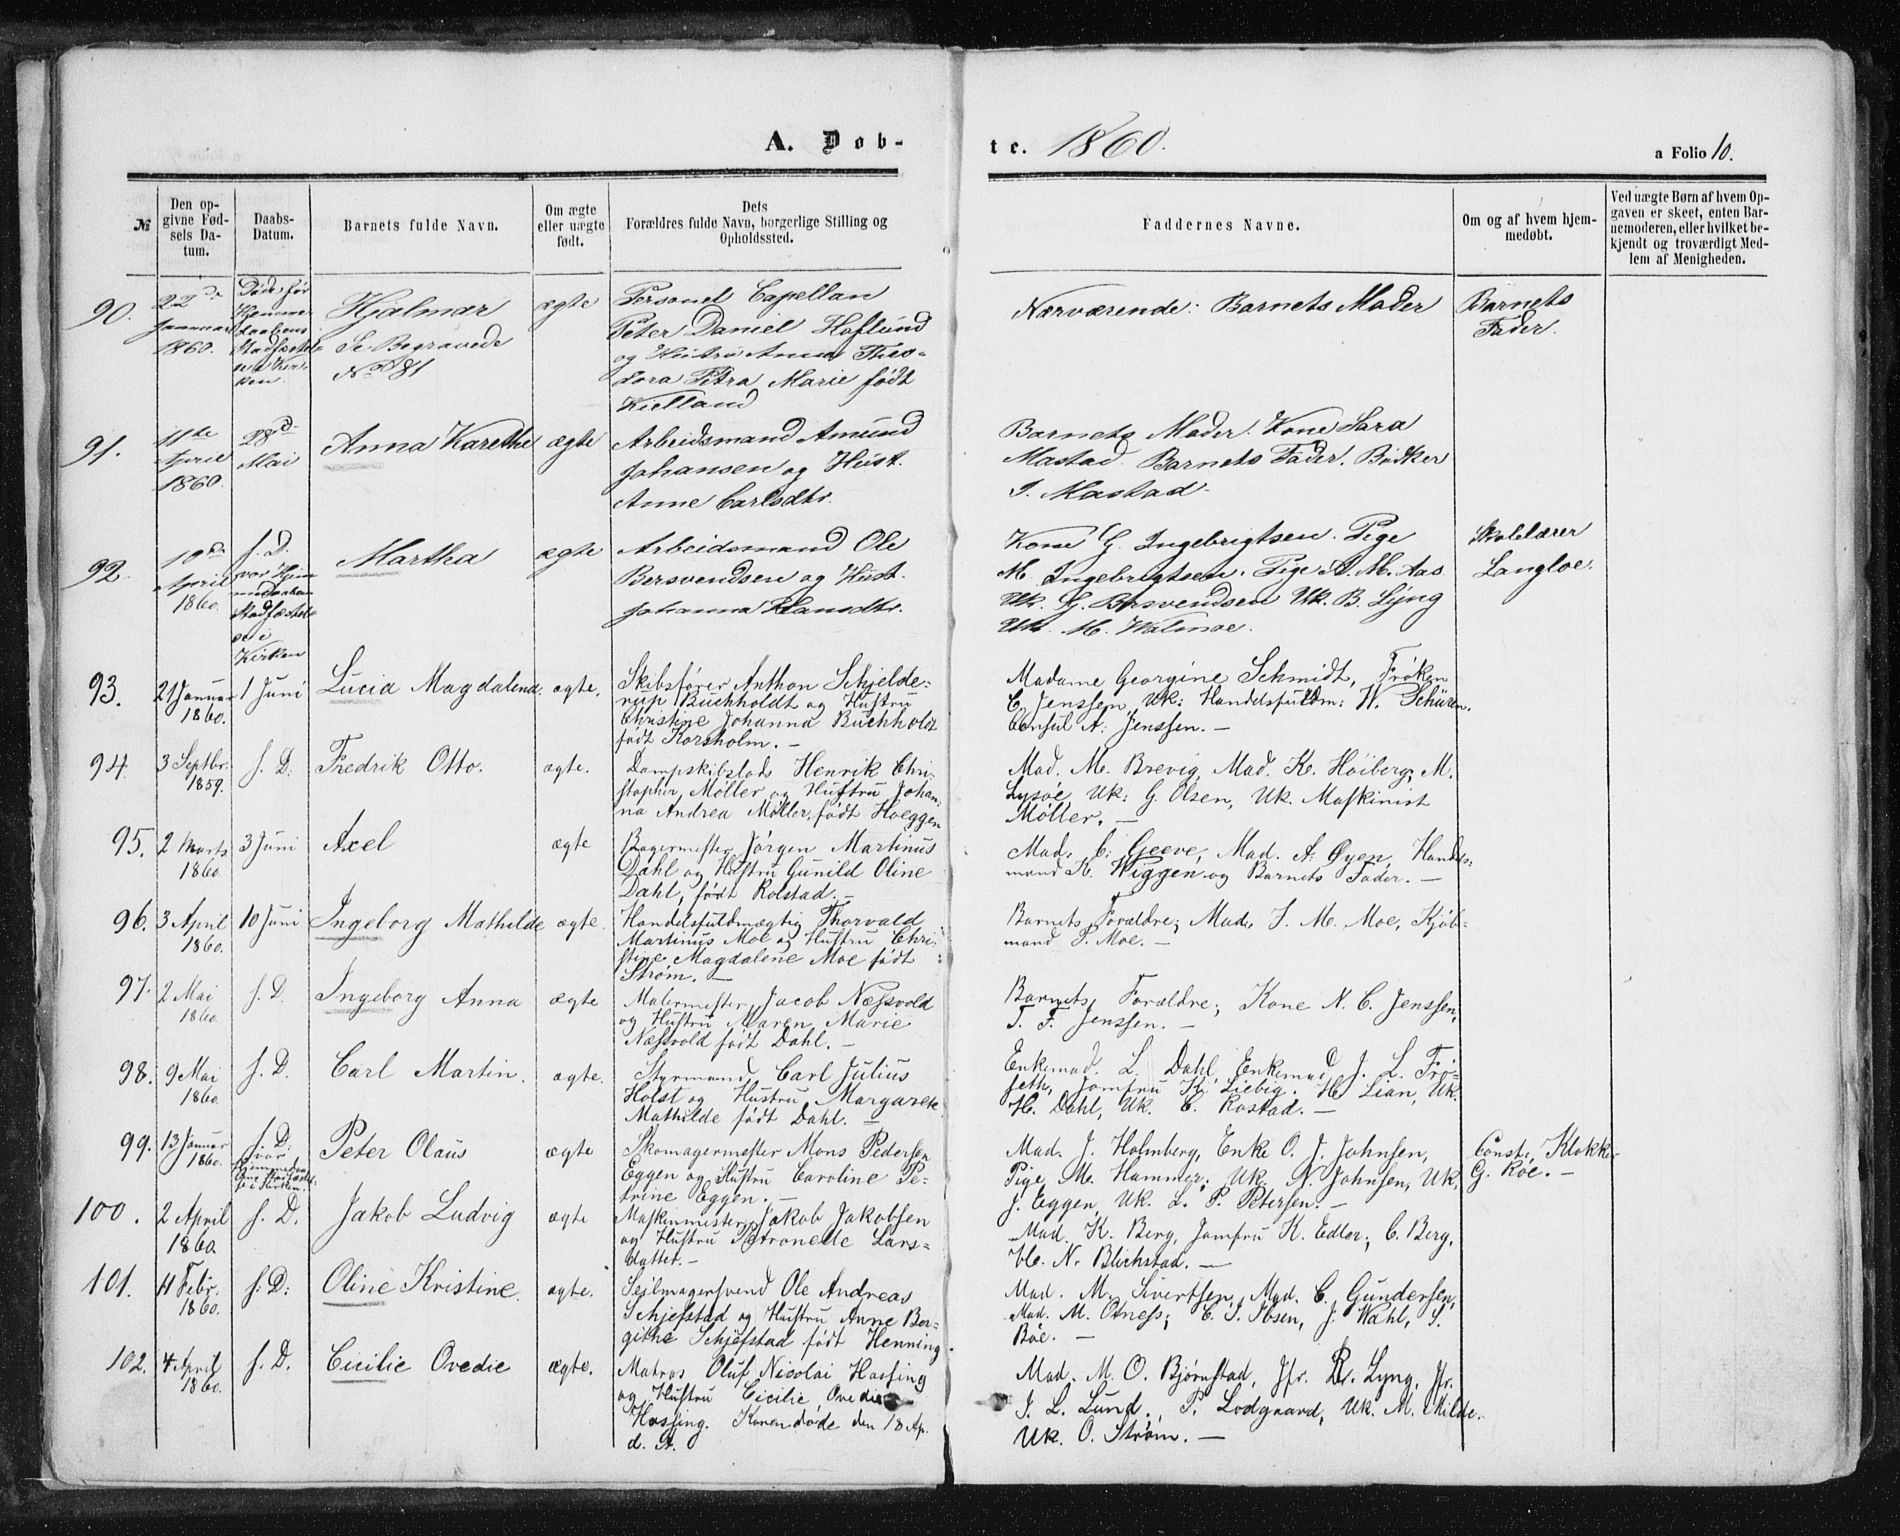 A. Døb-
te. 1860.
a Folio 10.
№
Den op-
givne Fød-
sels Da-
tum.
Daabs-
Datum.
Barnets fulde Navn.
Om ægte
eller uægte
født.
Dets
Forældres fulde Navn, borgerlige Stilling og
Opholdssted.
Faddernes Navne.
Om og af hvem hjem-
medøbt.
Ved uægte Børn af hvem Op-
gaven er skeet, enten Bar-
nemoderen, eller hvilket be-
kjendt og troværdigt Med-
lem af Menigheden.
90.
22de
Januar
1860.
Døde før
Hjemme
daabens
Stadfæstel-
se i Kir-
ken.
Hjalmar
Se Begravede
No 81
ægte
Personel Capellan
Peter Daniel Hoflund
og Hustru Anna Theo-
dora Petra Marie født
Kielland
Nærværende: Barnets Moder
Barnets
Fader.
91.
11te
April
1860.
28d
Mai
Anna Karethe
ægte
Arbeidsmand Amund
Johansen og Hust.
Anne Carlsdtr.
Barnets Moder. Kone Sara
Mastad. Barnets Fader. Bødker
I. Mastad.
92.
10de
April
1860.
s. D.
var Hjem
medaaben
Stadfæstet
i
Kirken
Martha
ægte
Arbeidsmand Ole
Bersvendsen og Hust.
Johanna Hansdtr.
Kone G. Ingebrigtsen. Pige
M. Ingebrigtsen. Pige A. M. Aas
Uk. G. Bersvendsen Uk. B. Lyng
Uk. M. Walmoe.
Skolelærer
Langloe.
93.
21 Januar
1860.
1 Juni
Lucia Magdalena.
ægte.
Skibsfører Anthon Schjelde-
rup Buchholdt og Hustru
Christine Johanna Buchholdt
født Korsholm. —
Madame Georgine Schmidt, Frøken
C. Jenssen, Uk: Handelsfuldm: W. Schüren.
Consul A. Jenssen. —
94.
3 Septbr.
1859.
s. D.
Fredrik Otto.
ægte.
Dampskibslods Henrik Chri-
stopher Møller og Hustru Johan-
na Andrea Møller, født Hoeggen
Mad. M. Brevig, Mad. K. Høiberg; M.
Lysøe, Uk: G. Olsen, Uk. Maskinist
Møller. —
95.
2 Marts
1860.
3 Juni
Axel
ægte
Bagermester Jørgen Martinus
Dahl og Hustru Gunild Oline
Dahl, født Rolstad. —
Mad. C. Greeve, Mad. A. Øyen, Handels-
mand H. Wiggen og Barnets Fader. —
96.
3 April
1860.
10 Juni
Ingeborg Mathilde
ægte.
Handelsfuldmægtig Thorvald
Martinus Moe og Hustru Chri-
stine Magdalene Moe født
Strøm. —
Barnets Forældre; Mad. J. M. Moe, Kjøb-
mand P. Moe. —
97.
2 Mai
1860.
s. D.
Ingeborg Anna
ægte
Malermester Jacob Næssvold
og Hustru Maren Marie
Næssvold født Dahl. —
Barnets Forældre; Kone N. C. Jenssen,
T. F. Jenssen. —
98.
9 Mai
1860.
s. D.
Carl Martin.
ægte.
Styrmand Carl Julius
Holst og Hustru Margarete
Mathilde født Dahl. —
Enkemad. L. Dahl, Enkemad. J. L. Frø-
seth, Jomfru K. Liebig. H. Lian, Uk.
H. Dahl, Uk. C. Rostad. —
99.
13 Januar
1860.
s. D.
var
Peter Olaus
ægte
Skomagermester Mons Pedersen
Eggen og Hustru Caroline Pe-
trine Eggen. —
Mad. J. Holmberg, Enke O. J. Johnsen,
Pige M. Hammer; Uk. N. Johnsen, Uk.
J. Eggen, Uk. L. P. Petersen. —
Const. Klokker
G. Roe. —
100.
2 April
1860.
s. D.
Jakob Ludvig
ægte
Maskinmester Jakob Jakobsen
og Hustru Petronelle Lars-
datter. —
Mad. K. Berg, Jomfru K. Edler; C. Berg,
Uk. N. Blichstad. —
101.
4 Febr.
1860.
s. D:
Oline Kristine.
ægte.
Seilmagersvend Ole Andreas
Schjefstad og Hustru Anne Ber-
githe Schjefstad født Henning.
Mad. M. Sivertsen, Mad. C. Gundersen,
Mad. M. Otness; C. I. Ibsen, J. Wahl, S.
Bøe. —
102.
4 April
1860.
s. D.
Cicilie Ovedie
ægte.
Matros Oluf Nicolai Hassing
og Hustru Cicilie Ovedie
Hassing. Konen døde den 18 Ap.
d. A.
Mad. M. O. Bjørnstad, Jfr. Br. Lyng, Jfr.
J. L. Lund, P. Lodgaard, Uk. M. Milde.
Uk. O. Strøm. —